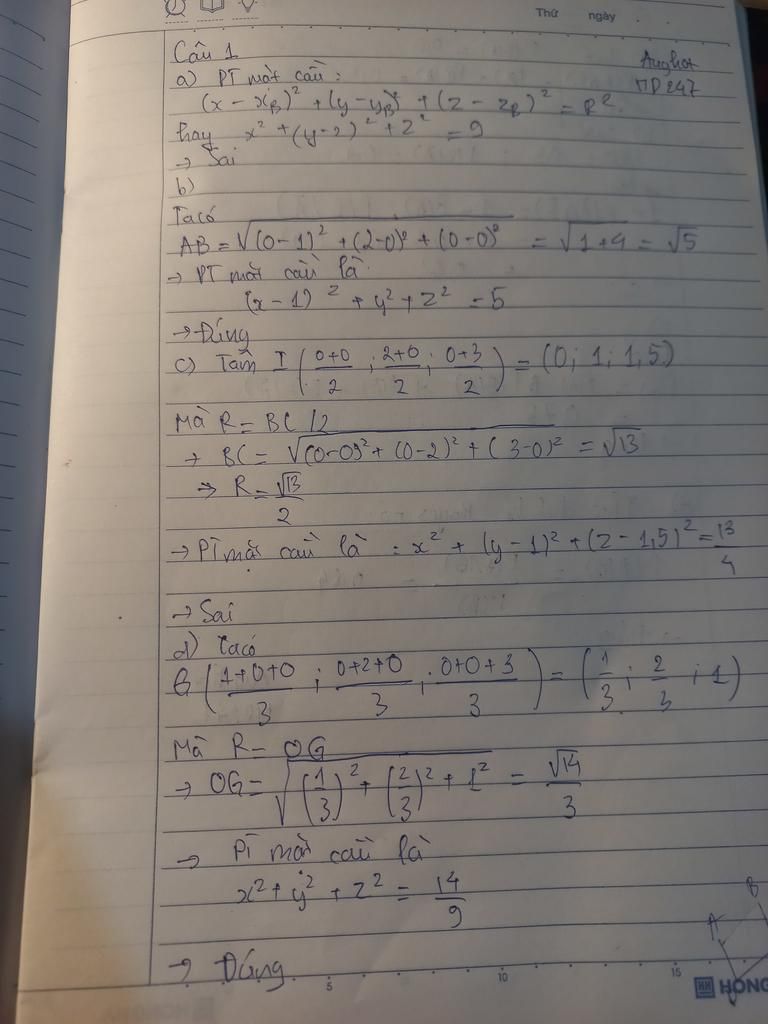 Thứ ngày
Câu 1
a) PT mặt cầu :
(x - x_B)² + (y - y_B)² + (z - z_B)² = R²
hay x² + (y-2)² + z² = 9
→ Sai
b)
Ta có
AB = √((0-1)² + (2-0)² + (0-0)²) = √(1+4) = √5
→ PT mặt cầu là
(x-1)² + y² + z² = 5
→ Đúng
c) Tâm I ( (0+0)/2 ; (2+0)/2 ; (0+3)/2 ) = (0; 1; 1,5)
Mà R = BC/2
→ BC = √((0-0)² + (0-2)² + (3-0)²) = √13
→ R = √13/2
→ PT mặt cầu là : x² + (y-1)² + (z-1,5)² = 13/4
→ Sai
d) Ta có
G ( (1+0+0)/3 ; (0+2+0)/3 ; (0+0+3)/3 ) = ( 1/3 ; 2/3 ; 1 )
Mà R = OG
→ OG = √((1/3)² + (2/3)² + 1²) = √14/3
→ PT mặt cầu là
x² + y² + z² = 14/9
→ Đúng
A B
5 10 15
HH HONG